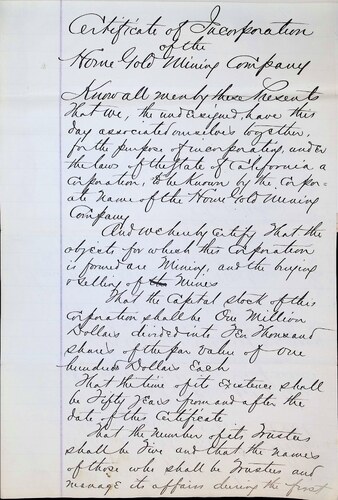 Certificate of Incorporation
of the
Nome Gold Mining Company
Know all men by these Presents
That we, the undersigned, have this
day associated ourselves together,
for the purpose of incorporating, under
the laws of the State of California a
Corporation, to be known by the Corpor-
ate name of the Nome Gold Mining
Company
And we hereby Certify That the
objects for which this Corporation
is formed are Mining, and the buying
& selling of Mines
That the Capital stock of this
Corporation shall be One Million
Dollars divided into Ten Thousand
shares of the par value of One
hundred Dollars Each
That the time of its Existence shall
be Fifty years from and after the
date of this Certificate
That the Number of its Trustees
shall be Five and that the names
of those who shall be Trustees and
manage its affairs during the first